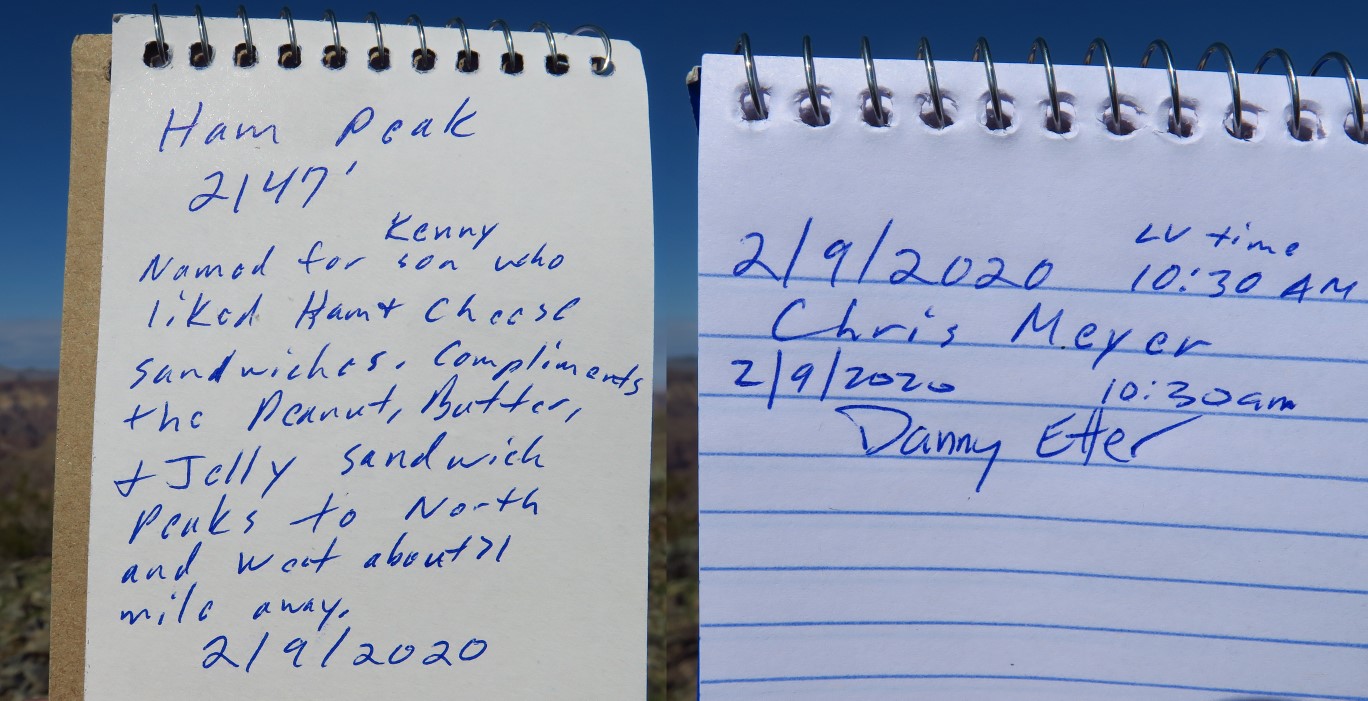 Ham Peak
2147'
Kenny
Named for son who
liked Ham + Cheese
sandwiches. Compliments
the Peanut, Butter,
+ Jelly sandwich
peaks to North
and West about >1
mile away.
2/9/2020
LV time
2/9/2020 10:30 AM
Chris Meyer
2/9/2020 10:30am
Danny Etter